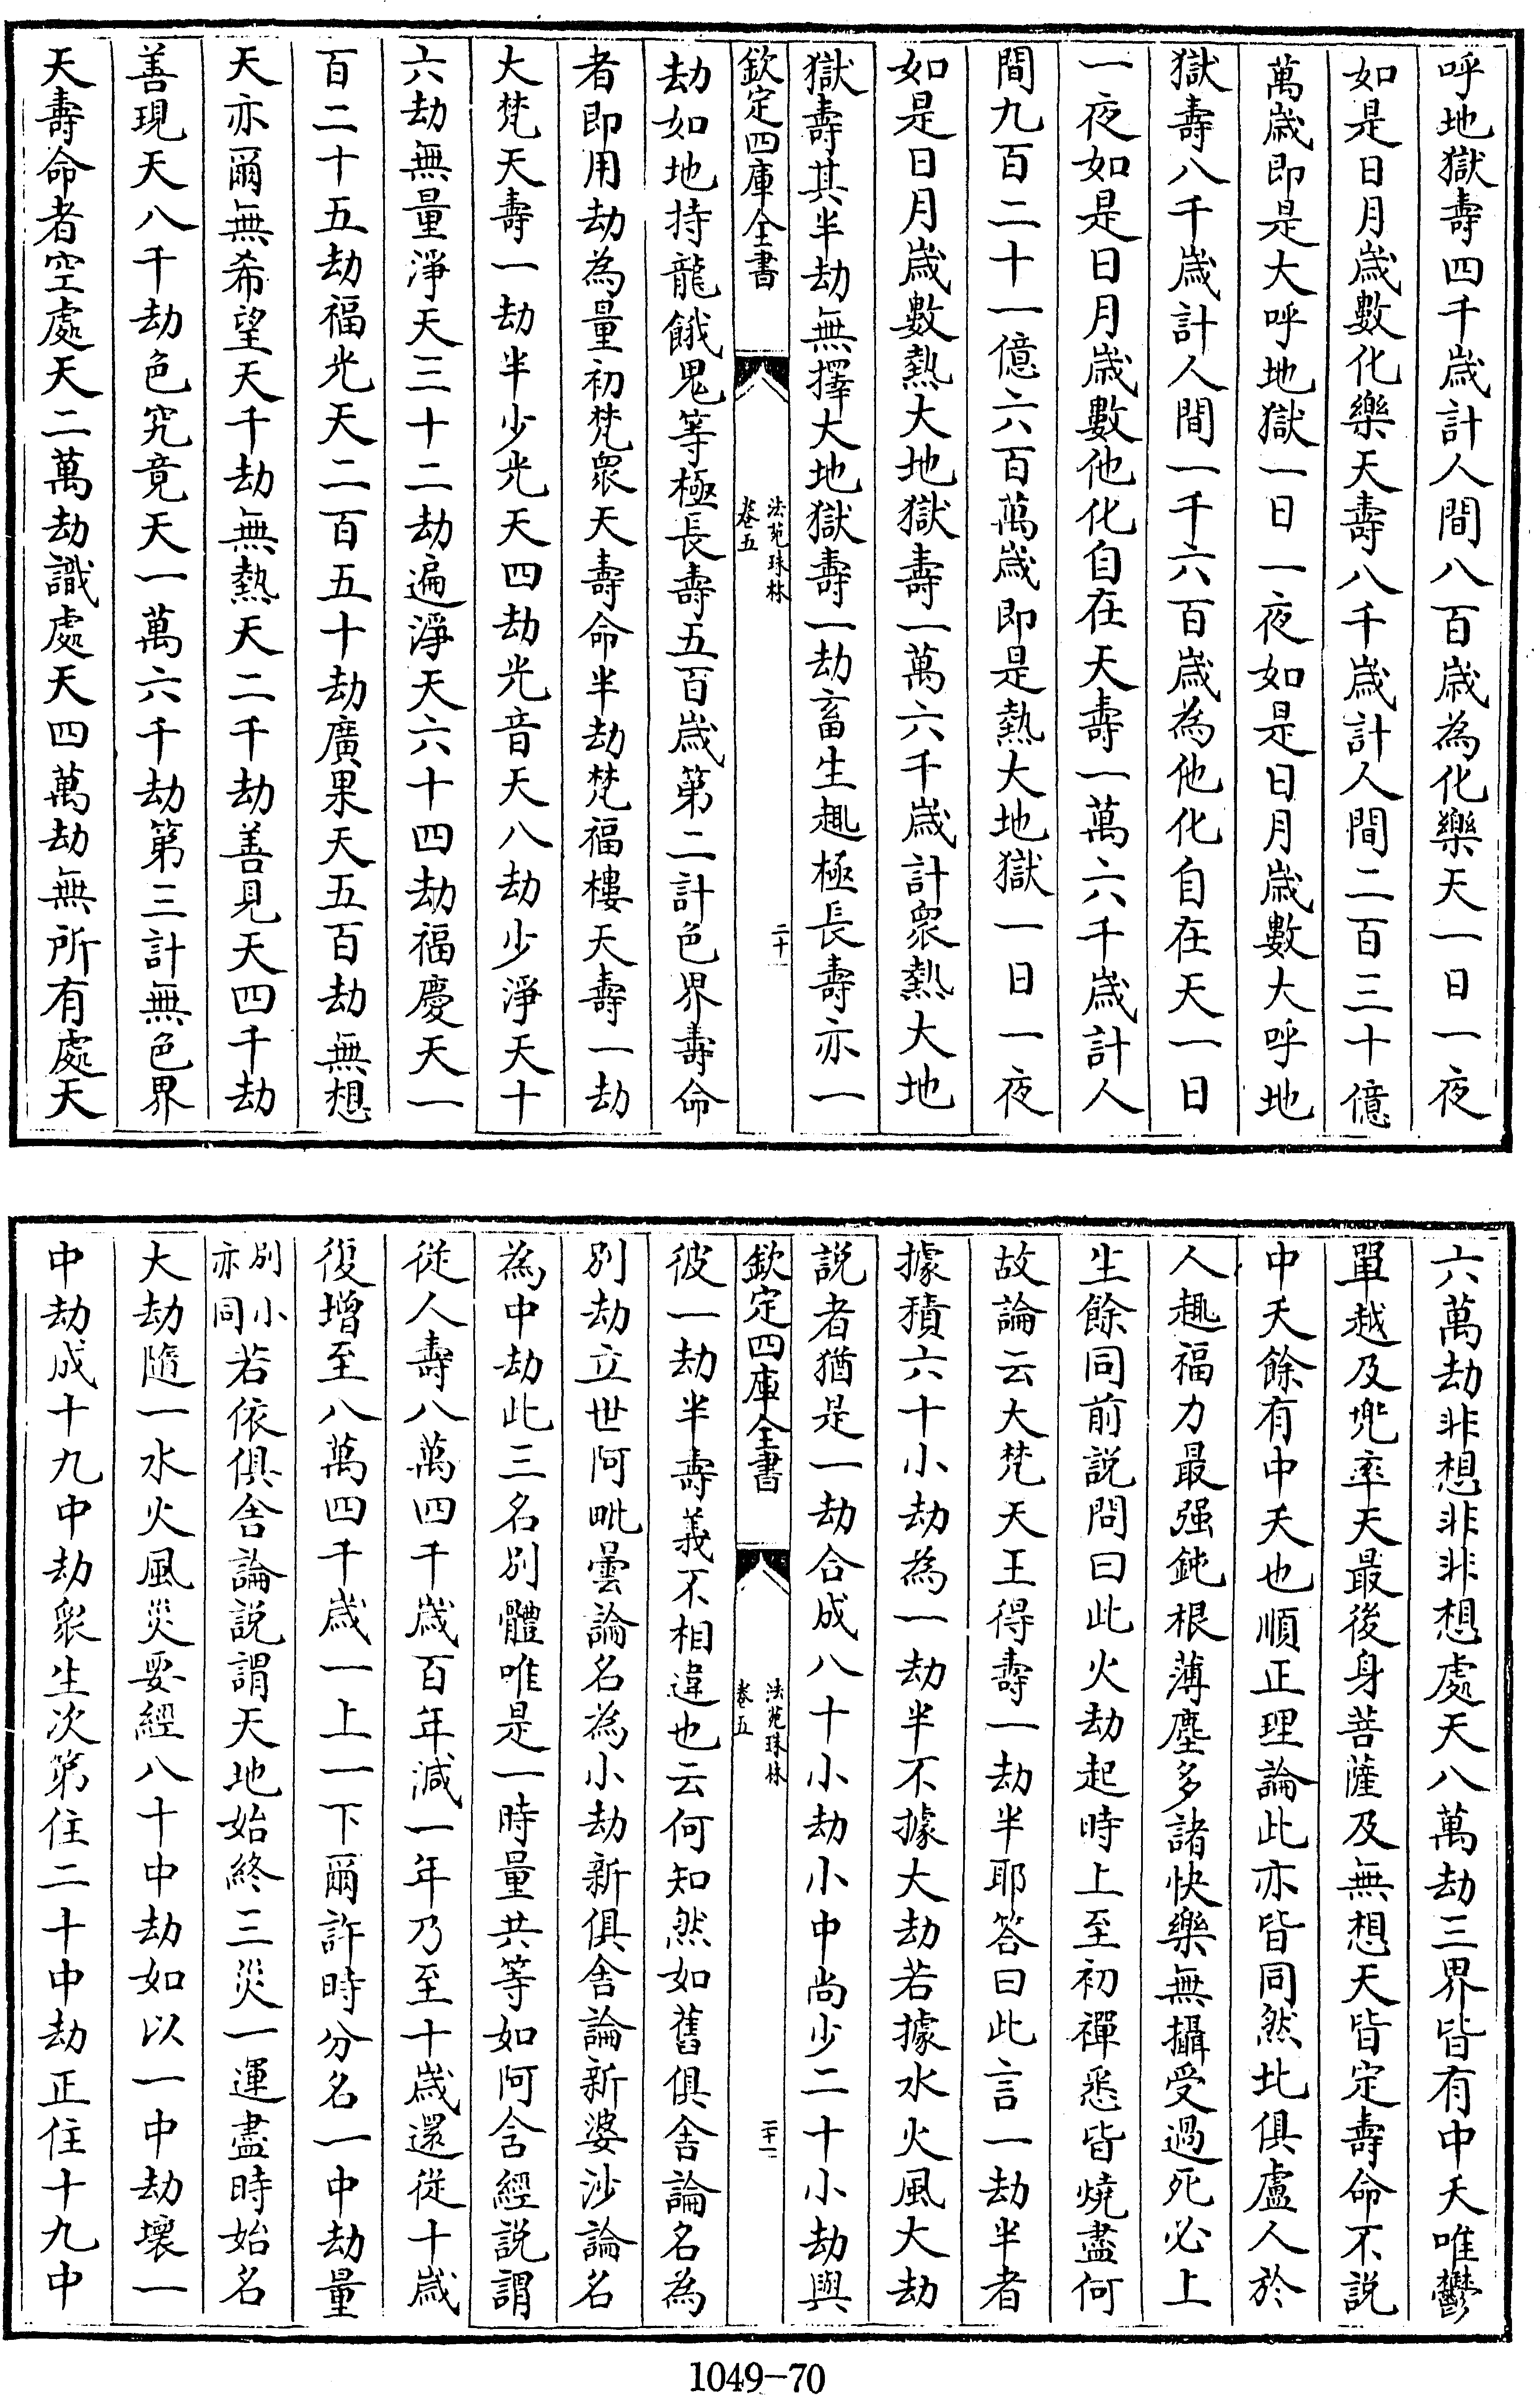 呼地獄壽四千歲計人間八百歲為化樂天一日一夜
如是日月歲數化樂天壽八千歲計人間二百三十億
萬歲即是大呼地獄一日一夜如是日月歲數大呼地
獄壽八千歲計人間一千六百歲為他化自在天一日
一夜如是日月歲數他化自在天壽一萬六千歲計人
間九百二十一億六百萬歲即是熱大地獄一日一夜
如是日月歲數熱大地獄壽一萬六千歲計衆熱大地
獄壽其半劫無擇大地獄壽一劫畜生趣極長壽亦一
欽定四庫全書
法苑珠林
卷五
二十一
劫如地持龍餓鬼等極長壽五百歲第二計色界壽命
者即用劫為量初梵衆天壽命半劫梵福樓天壽一劫
大梵天壽一劫半少光天四劫光音天八劫少淨天十
六劫無量淨天三十二劫遍淨天六十四劫福慶天一
百二十五劫福光天二百五十劫廣果天五百劫無想
天亦爾無希望天千劫無熱天二千劫善見天四千劫
善現天八千劫色究竟天一萬六千劫第三計無色界
天壽命者空處天二萬劫識處天四萬劫無所有處天
六萬劫非想非非想處天八萬劫三界皆有中夭唯鬱
單越及兜率天最後身菩薩及無想天皆定壽命不說
中夭餘有中夭也順正理論此亦皆同然北俱盧人於
人趣福力最强鈍根薄塵多諸快樂無攝受過死必上
生餘同前說問曰此火劫起時上至初禪悉皆燒盡何
故論云大梵天王得壽一劫半耶答曰此言一劫半者
據積六十小劫為一劫半不據大劫若據水火風大劫
說者猶是一劫合成八十小劫小中尚少二十小劫與
欽定四庫全書
法苑珠林
卷五
二十二
彼一劫半壽義不相違也云何知然如舊俱舍論名為
別劫立世阿毗曇論名為小劫新俱舍論新婆沙論名
為中劫此三名別體唯是一時量共等如阿含經說謂
從人壽八萬四千歲百年減一年乃至十歲還從十歲
復增至八萬四千歲一上一下爾許時分名一中劫量
別小亦同若依俱舍論說謂天地始終三災一運盡時始名
大劫隨一水火風災要經八十中劫如以一中劫壞一
中劫成十九中劫衆生次第住二十中劫正住十九中
1049-70